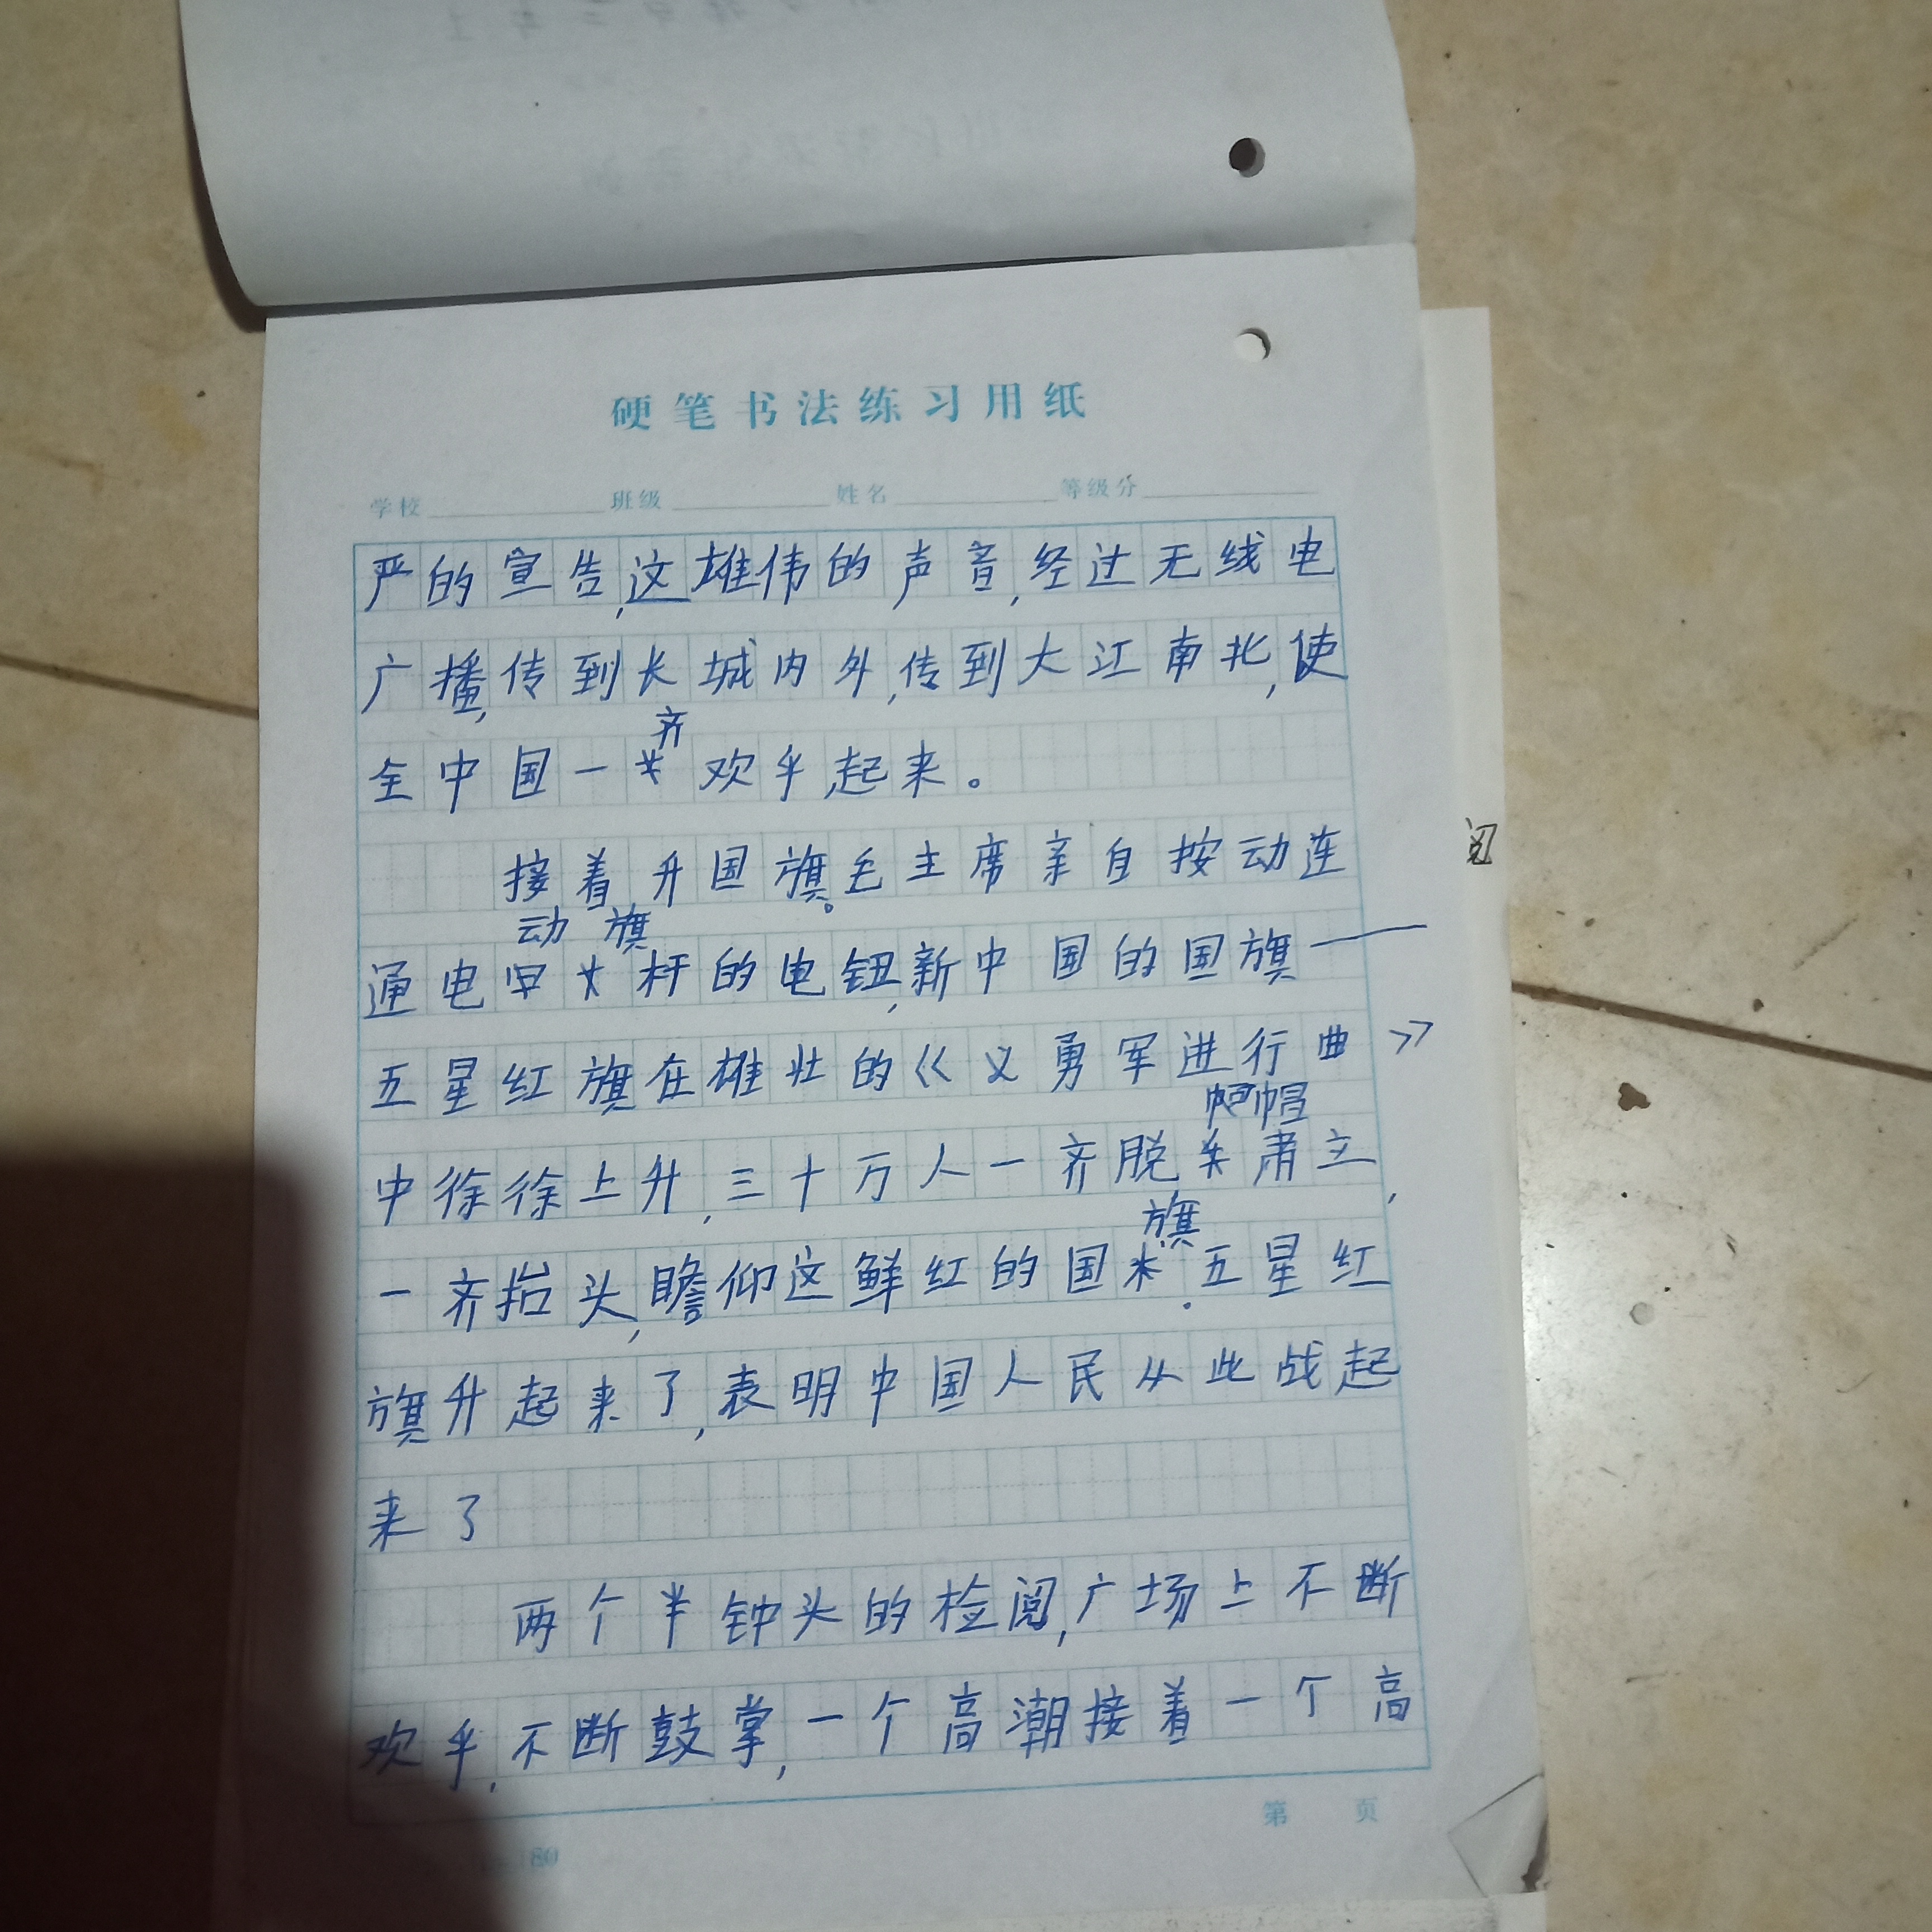 硬笔书法练习用纸
学校 班级 姓名 等级分
严的宣告,这雄伟的声音,经过无线电
广播,传到长城内外,传到大江南北,使
齐
全中国一 欢乎起来。
接着升国旗。毛主席亲自按动连
阅
动 旗
通电 杆的电钮,新中国的国旗——
五星红旗在雄壮的《义勇军进行曲》
帽
中徐徐上升,三十万人一齐脱 肃立,
旗
一齐抬头,瞻仰这鲜红的国 .五星红
旗升起来了,表明中国人民从此战起
来了
两个半钟头的检阅,广场上不断
欢乎,不断鼓掌,一个高潮接着一个高
第 页
80